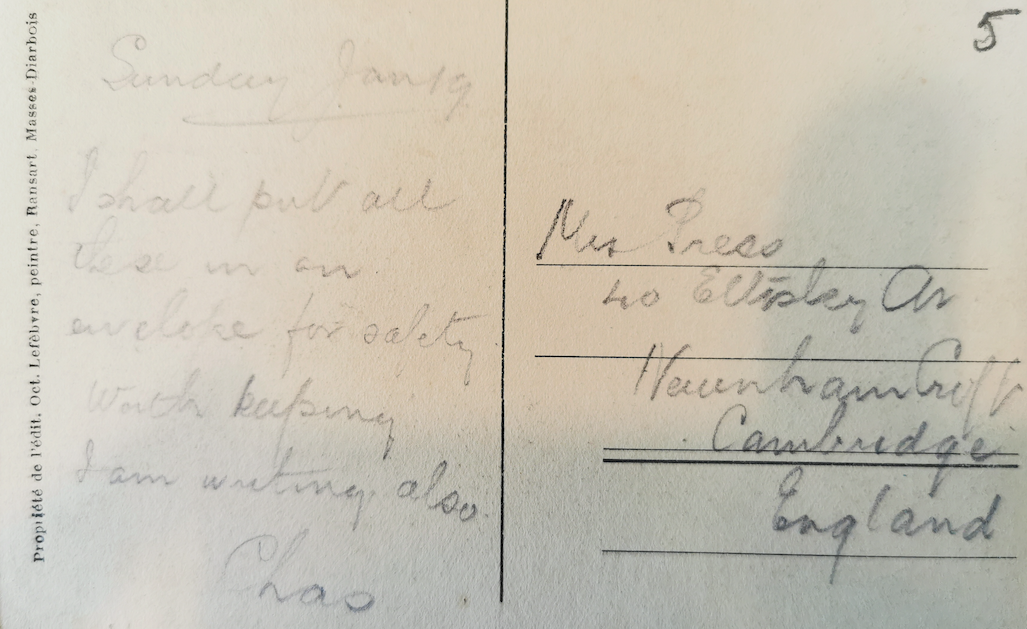 Propriété de l'édit. Oct. Lefèbvre, peintre, Ransart. Masses-Diarbois
5
Sunday Jan 19
I shall put all
these in an
enveloke for safety
Worth keeping
I am writing also.
Chas
Mrs Press
40 Eltisley Av
Newnham Croft
Cambridge
England